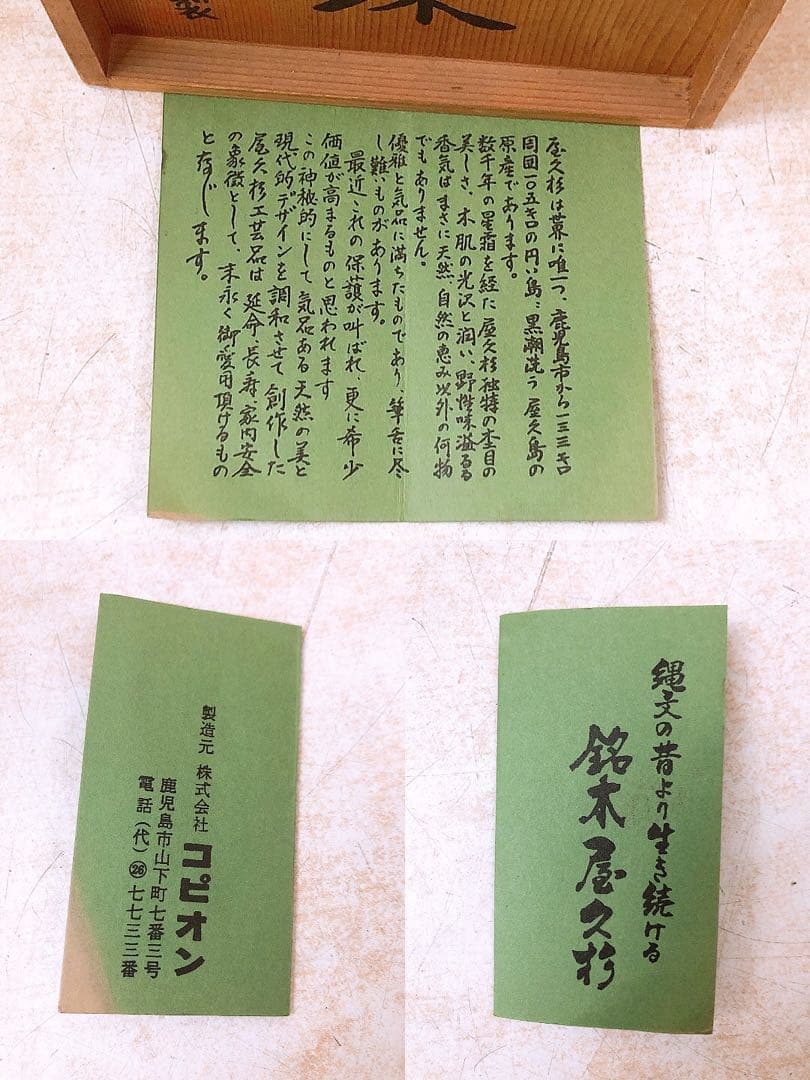 製
屋久杉は世界に唯一つ、鹿児島市から一三三キロ
周囲一〇五キロの円い島…黒潮洗う屋久島の
原産であります。
数千年の星霜を経た屋久杉独特の杢目の
美しさ、木肌の光沢と潤い、野性味溢るる
香気はまさに天然、自然の恵み以外の何物
でもありません。
優雅と気品に満ちたものであり、筆舌に尽
し難いものがあります。
最近これの保護が叫ばれ、更に希少
価値が高まるものと思われます
この神秘的にして気品ある天然の美と
現代的デザインを調和させて創作した
屋久杉工芸品は延命、長寿、家内安全
の象徴として、末永く御愛用頂けるもの
と存じます。
製造元 株式会社 コピオン
鹿児島市山下町七番三号
電話(代)㉖七七三三番
縄文の昔より生き続ける
銘木屋久杉